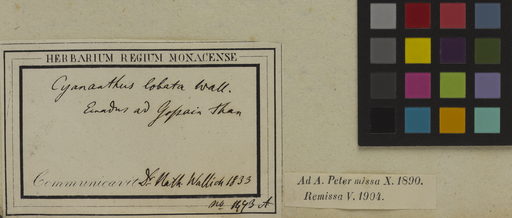 HERBARIUM REGIUM MONACENSE
Cyananthus lobata Wall.
Emodus ad Gossain Than
Communicavit Dr. Nath. Wallich 1833
no. 1473 A
Ad A. Peter missa X. 1890.
Remissa V. 1904.